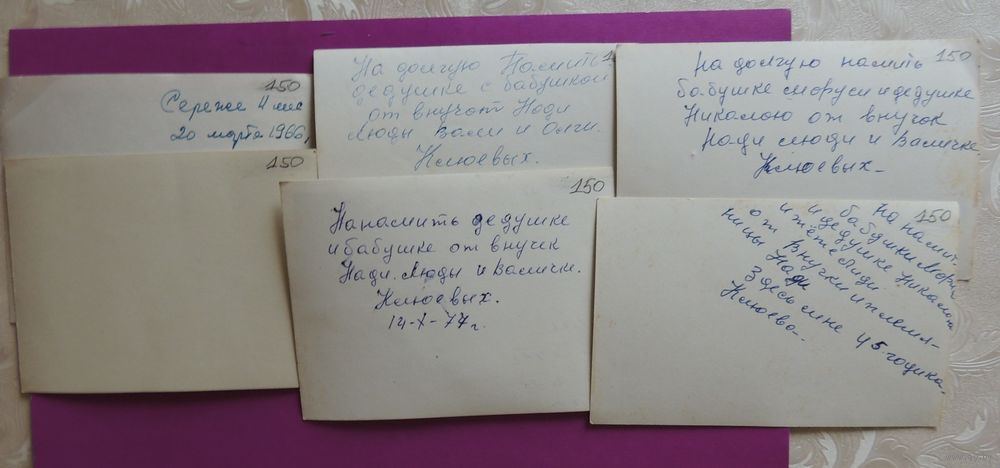 150
Сереже 4 мес
20 марта 1966,
150
1
На долгую Память
дедушке с бабушкой
от внучат Нади
Люды Вали и Олги.
Клюевых.
150
На долгую память
бабушке Маруси и дедушке
Николаю от внучок
Нади Люди и Валички.
Клюевых-
150
На память дедушке
и бабушке от внучек
Нади. Люды и Валички.
Клюевых.
14-X-77г.
150
На памят.
и бабушки Маруси
и дедушке Николаю
и тёте Лиди
от внучки и племя-
ницы Нади
Здесь мне 4,5 годика.
Клюево-.